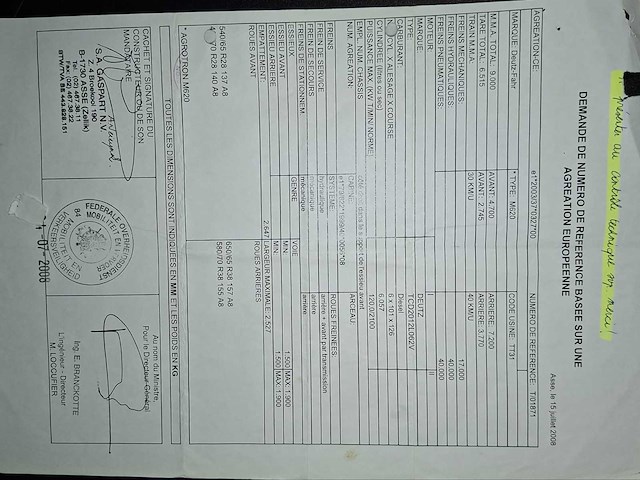 Présenter au contrôle technique svp merci!
Asse, le 15 juillet 2008
DEMANDE DE NUMERO DE REFERENCE BASEE SUR UNE
AGREATION EUROPEENNE
AGREATION-CE: e1*2003/37*0327*00 NUMERO DE REFERENCE: T/01871
MARQUE: Deutz-Fahr * TYPE: M620 CODE USINE: TT31
M.M.A. TOTAL: 9.000 AVANT: 4.700 ARRIERE: 7.200
TARE TOTAL: 6.515 AVANT: 2.745 ARRIERE: 3.770
TRAIN M.M.A. 30 KM/U 40 KM/U
FREINS MECHANIQUES: 17.000
FREINS HYDRAULIQUES: 40.000
FREINS PNEUMATIQUES: 40.000
MOTEUR:
MARQUE: DEUTZ
TYPE TCD2012L062V
CARBURANT: Diesel
CYL X ALESAGE X COURSE 6 x 101 x 126
CYLINDREE (litres ou sec) 6.057
PUISSANCE MAX. (KW T/MIN/ NORME) 120.0/2100
EMPL. NUM. CHASSIS dans le support de l'essieu avant
NUM. AGREATION: CABINE: ARCEAU:
FREINS SYSTEME: ROUES FREINEES:
FREIN DE SERVICE hydraulique arrière + avant par transmission
FREIN DE SECOURS mécanique arrière
FREINS DE STATIONNEM. mécanique arrière
ESSIEUX GENRE VOIE
ESSIEU AVANT MIN: 1.500 MAX: 1.900
ESSIEU ARRIERE MIN: 1.500 MAX: 1.900
EMPATTEMENT 2.647 LARGEUR MAXIMALE: 2.527
ROUES AVANT ROUES ARRIERES
540/65 R28 137 A8 650/65 R38 157 A8
R28 141 A8 580/70 R38 155 A8
* AGROTRON M620
TOUTES LES DIMENSIONS SONT INDIQUEES EN MM ET LES POIDS EN KG
CACHET ET SIGNATURE DU
CONSTRUCTEUR OU DE SON
MANDATAIRE
S.A. GASPART N.V.
Z. 4 Broekooi 190
B-1730 ASSE (Zellik)
Tel. (02) 467.38.11
Fax: (02) 467.38.22
BTW/TVA BE 443.828.151
FEDERALE OVERHEIDSDIENST
MOBILITEIT EN VERVOER
VERKEERSVEILIGHEID
84
-07- 2008
Au nom du Ministre,
Pour le Directeur Général
Ing. E. BRANCKOTTE
L'Ingénieur - Directeur
M. LOCQUIFIER